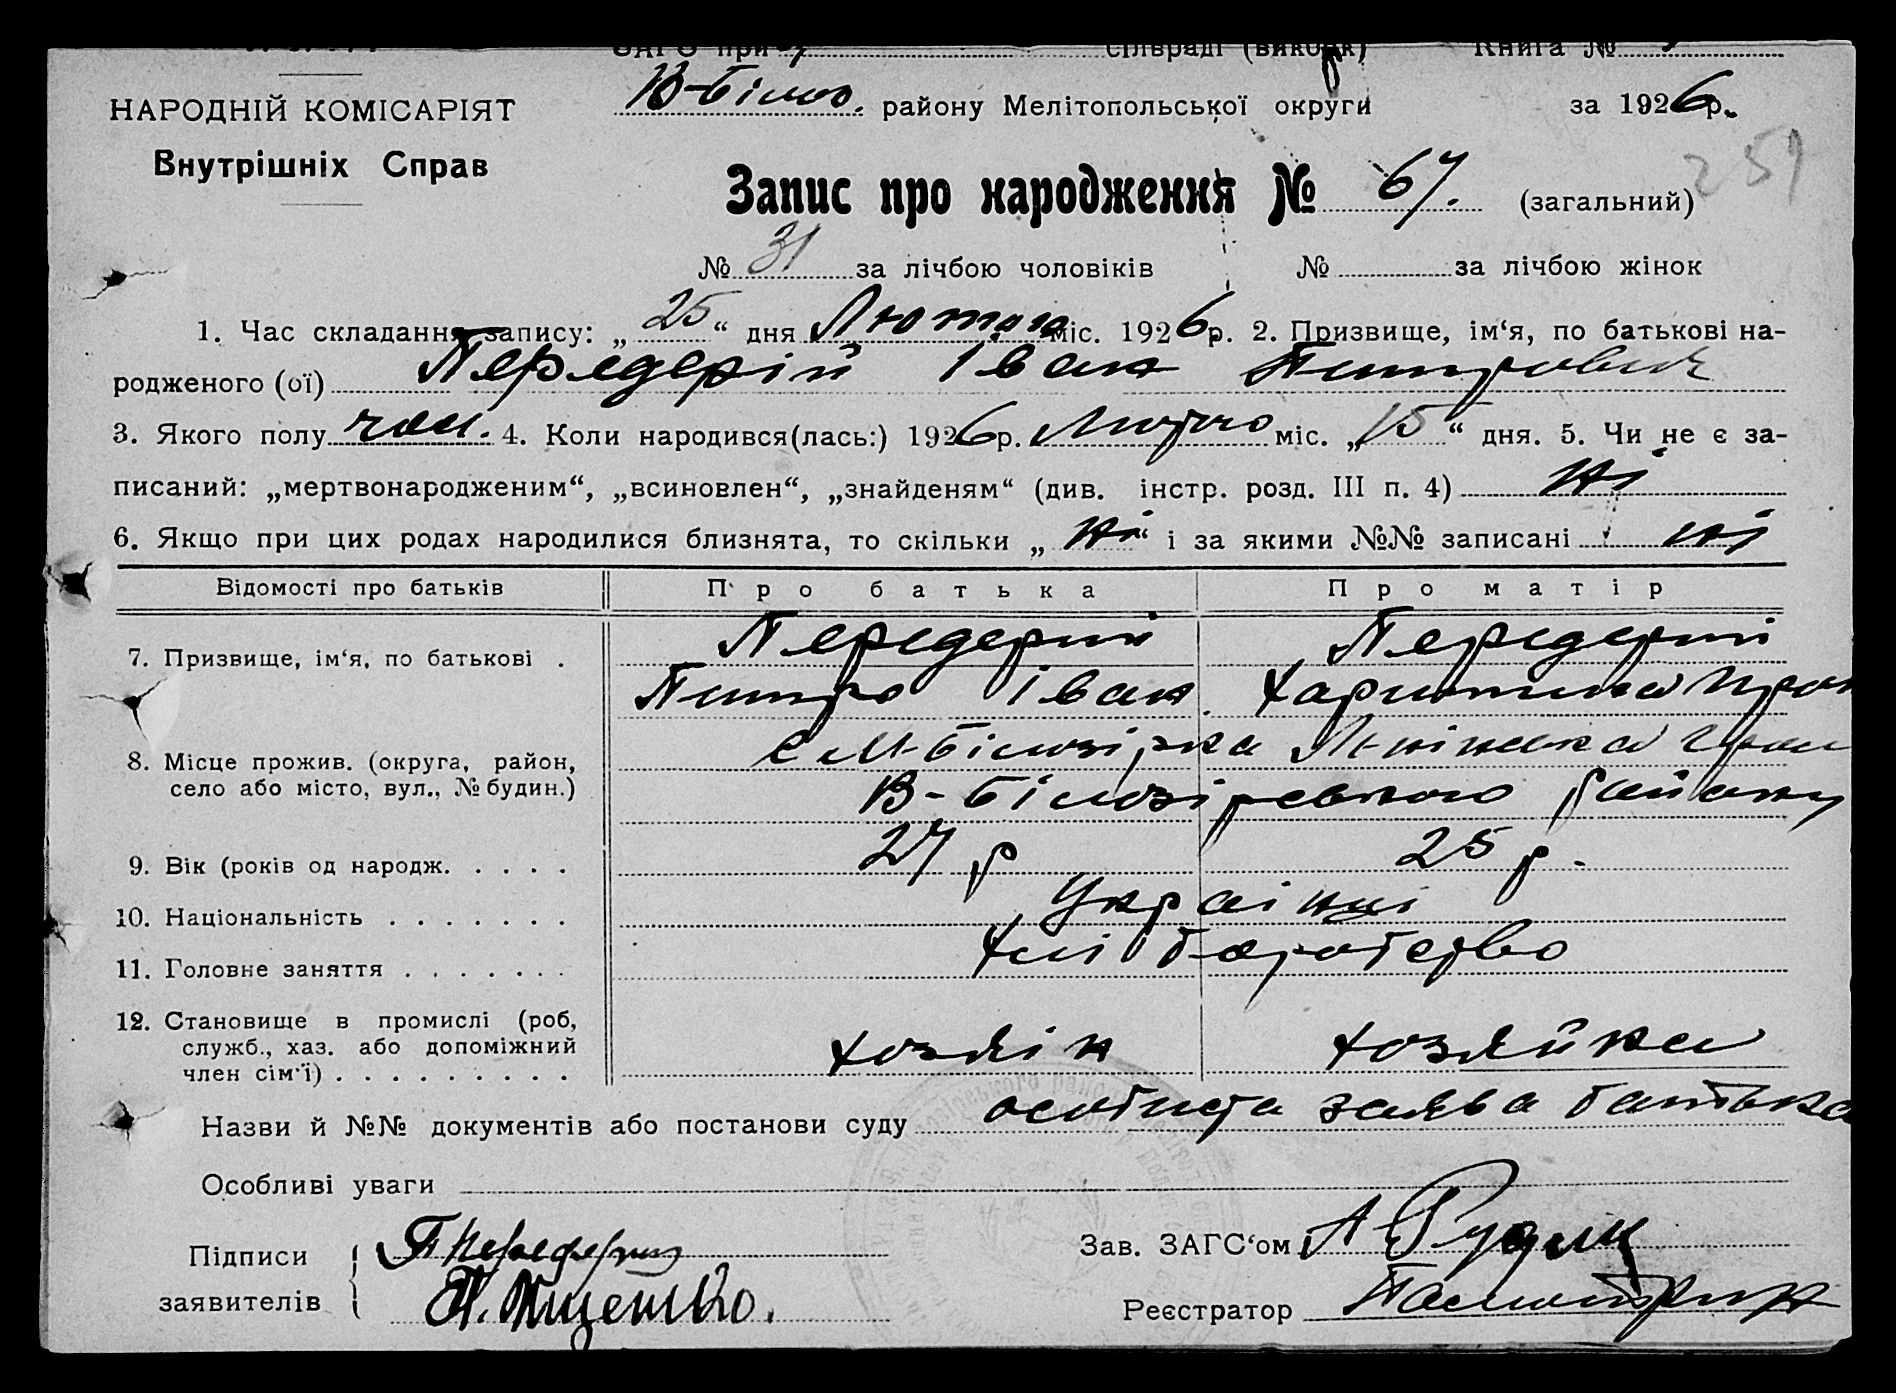 ОАГС при сільраді (викорк) Книга №
В-Білоз. району Мелітопольської округи за 1926 р.
НАРОДНІЙ КОМІСАРІЯТ
Внутрішніх Справ
251
Запис про народження № 67. (загальний)
№ 31 за лічбою чоловіків № за лічбою жінок
1. Час складання запису: „25“ дня Лютого міс. 1926 р. 2. Призвище, ім‘я, по батькові на-
родженого (ої) Передерій Іван Питрович
3. Якого полу чол. 4. Коли народився(лась:) 1926 р. Лютого міс. „15“ дня. 5. Чи не є за-
писаний: „мертвонародженим“, „всиновлен“, „знайденям“ (див. інстр. розд. III п. 4) ні
6. Якщо при цих родах народилися близнята, то скільки „ні“ і за якими №№ записані ні
Відомості про батьків Про батька Про матір
7. Призвище, ім‘я, по батькові . Передерий Передерий
Питро Іван. Харитина
8. Місце прожив. (округа, район, с М-Білозірка
село або місто, вул., № будин.) В-Білозірського району
9. Вік (років од народж. . . . . 27 р 25 р.
10. Національність . . . . . . . Українці
11. Головне заняття . . . . . . . Хліборобство
12. Становище в промислі (роб, служб., хаз. або допоміжний член сім‘ї) . . . . . . . . . хозяін хозяйка
Назви й №№ документів або постанови суду особиста заява батька
Особливі уваги
Підписи П Передерий Зав. ЗАГС‘ом А Рудик
заявителів Реєстратор